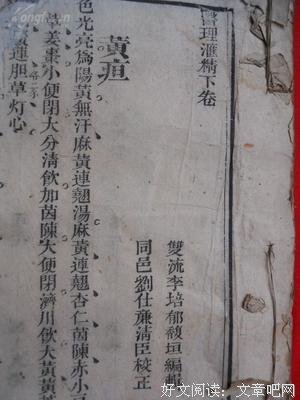 醫理滙精下卷
雙流李培郁馥垣編輯
同邑劉仕廉清臣校正
黃疸
色光亮爲陽黃無汗麻黃連翹湯麻黃連翹杏仁茵陳赤小豆
姜棗小便閉大分清飲加茵陳大便閉濟川飲大黃黃
連胆草灯心
好文阅读：文章吧网